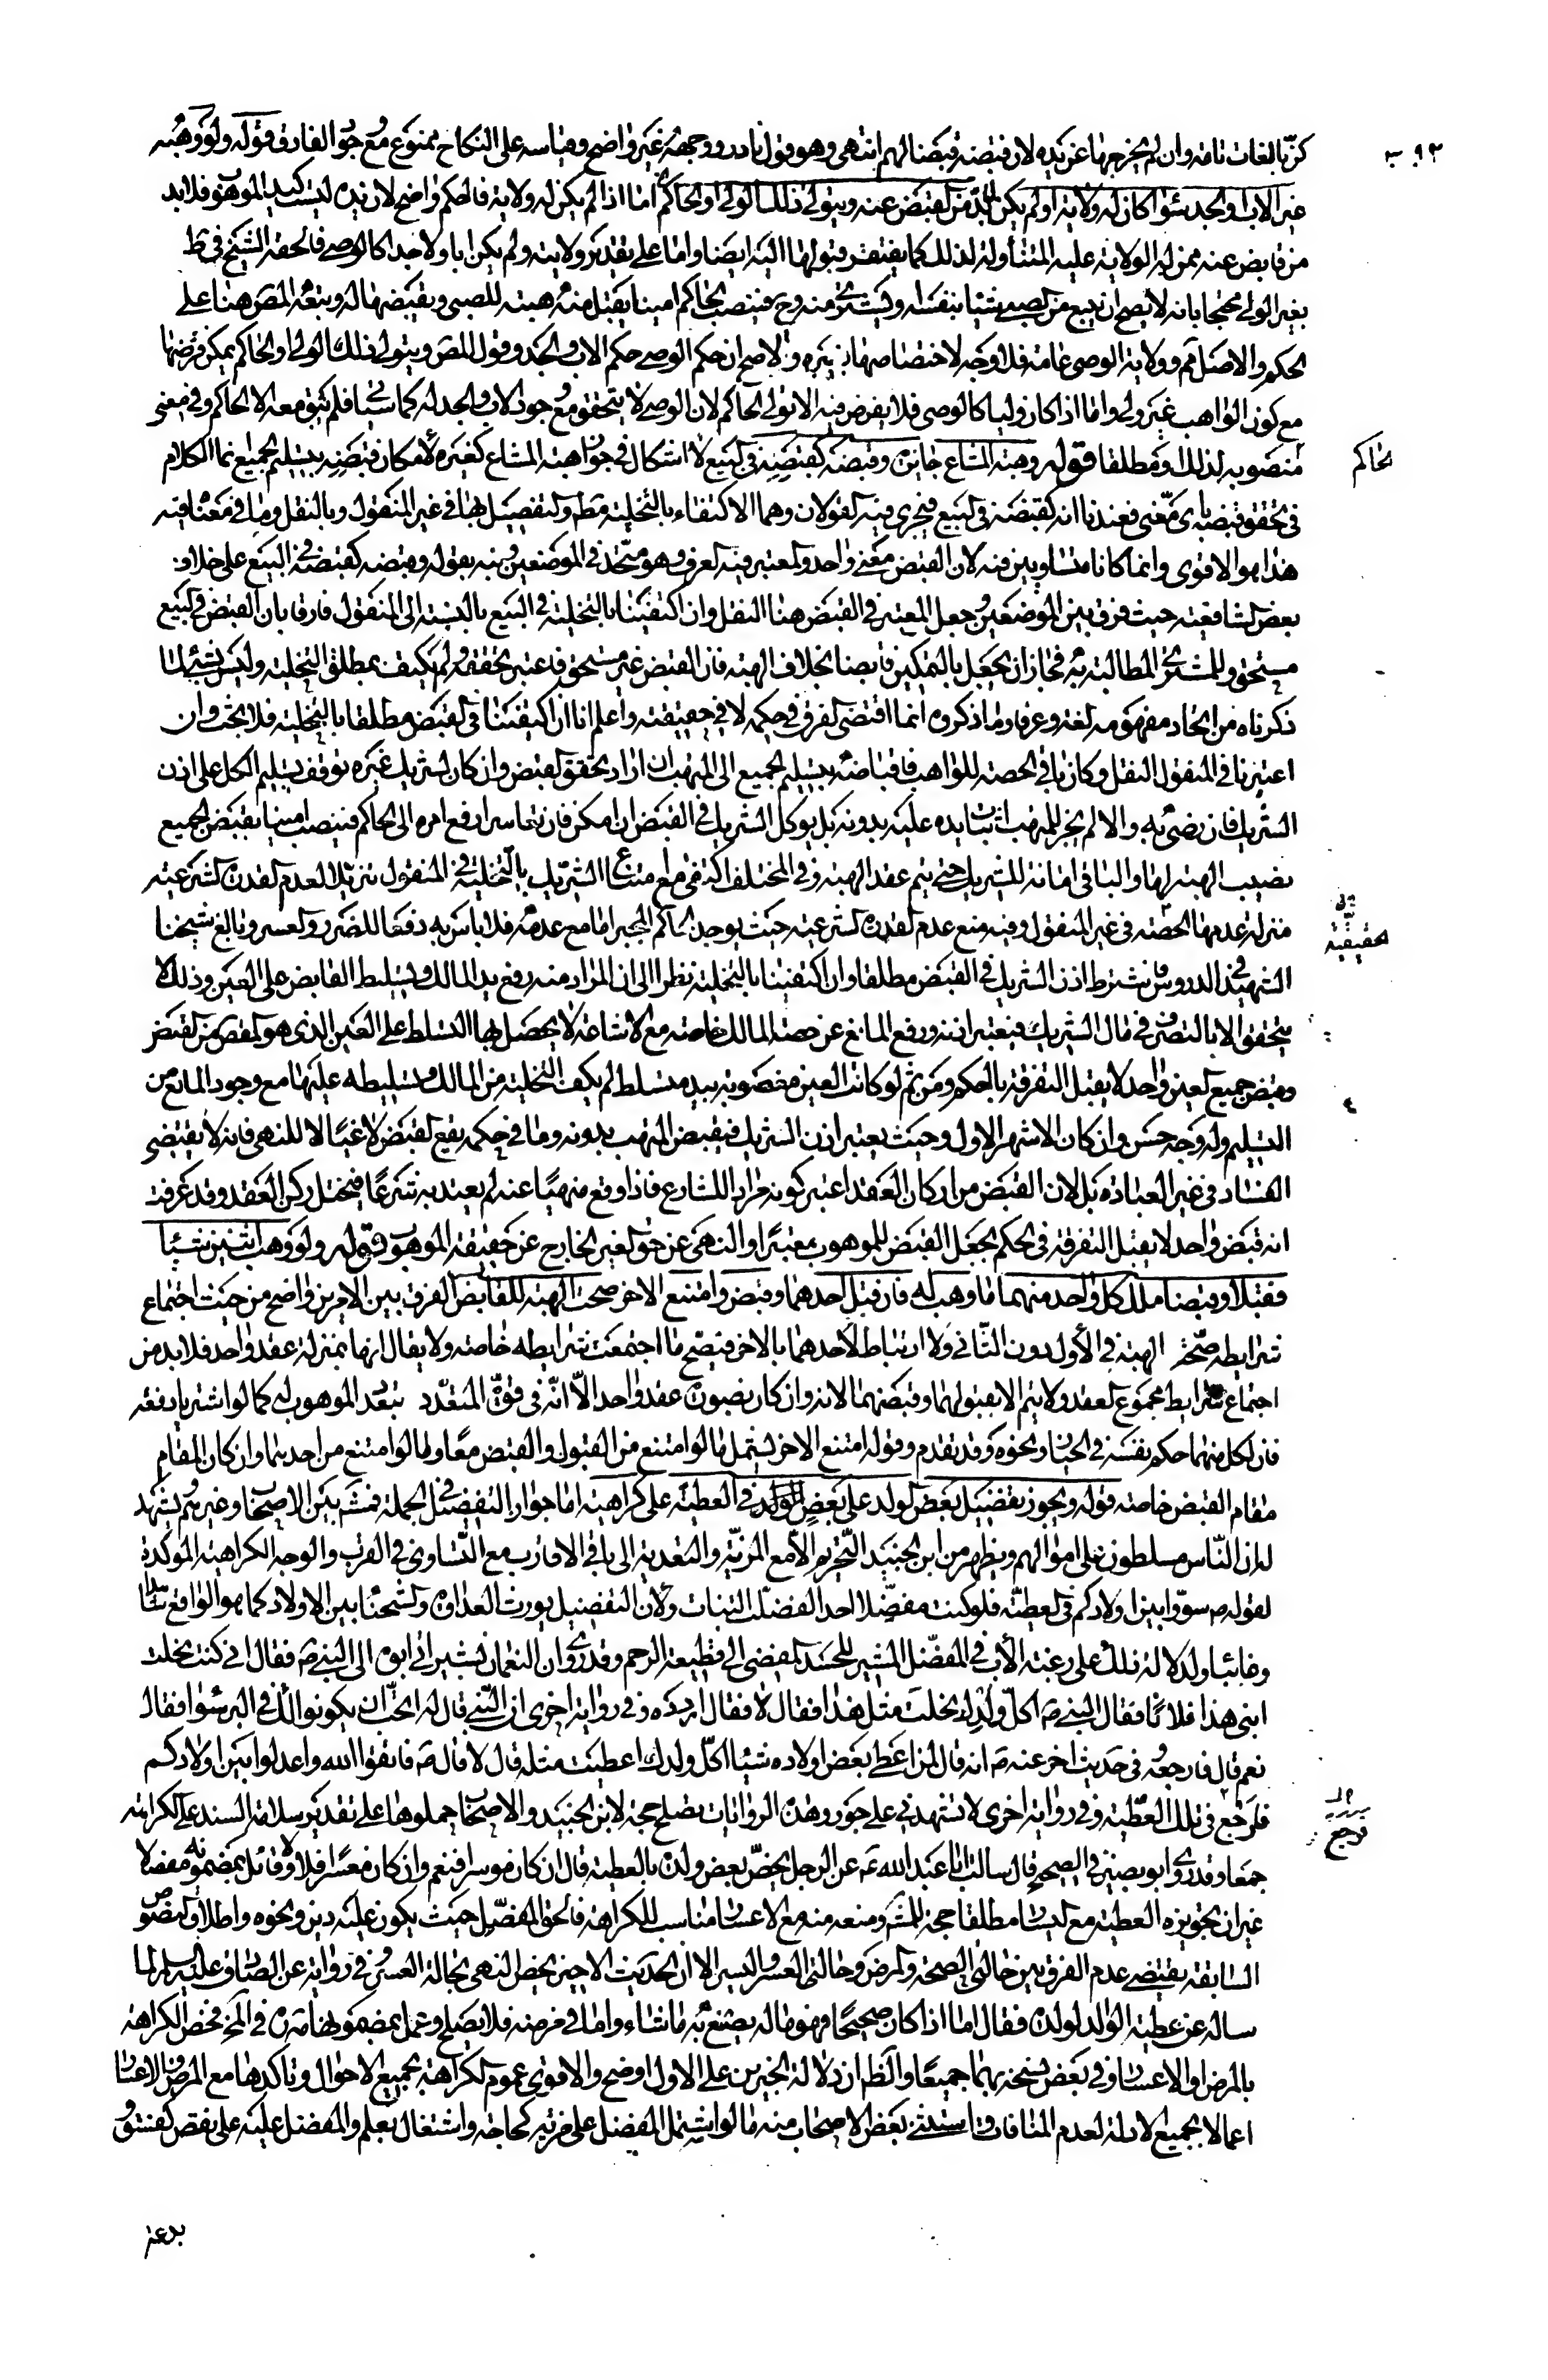 كن بالغات تامة وان لم يخرجها عن يده لان قبضه قبضا لهم انتهى وهو قول نادر ووجهه غير واضح وقياسه على النكاح ممنوع مع وجود الفارق قوله ولو وهبه
غير الاب والجد سواء كان له ولاية او لم يكن لابد من القبض عنه ويتولى ذلك الولي او الحاكم اما اذا لم يكن له ولاية فالحكم واضح لان يده ليست كيد الموهوب فلا بد
من قابض عنه ممن له الولاية عليه المتناولة لذلك كما يفتقر قبولها اليه ايضا واما على تقدير ولايته ولم يكن ابا ولا جدا كالوصي فالحقه الشيخ في ط
بغير الولي محتجا بانه لا يصح ان يبيع من الصبي شيئا بنفسه او يشتري منه وح فينصب الحاكم امينا يقبل منه هبته للصبي ويقبضها له وتبعه المص هنا على
الحكم والاصل مم وولاية الوصي عامة فلا وجه لاختصاصها بغيره والاصح ان حكم الوصي حكم الاب والجد وقول المص ويتولى ذلك الولي او الحاكم يمكن فرضها
مع كون الواهب غير ولي واما اذا كان وليا كالوصي فلا يفرض فيه الا تولي الحاكم لان الوصي لا يتحقق مع وجود الاب والجد له كما سيأتي فلم يبق معه الا الحاكم وفي معنى
منصوبه لذلك ومطلقا قوله وهبة المشاع جايزة وقبضه كقبضه في البيع لا اشكال في جواز هبة المشاع كغيره لامكان قبضه بتسليم الجميع انما الكلام
الحاكم
في تحقق قبضه باي معنى فعندنا انه كقبضه في البيع فيجري فيه القولان وهما الاكتفاء بالتخلية مطم والتفصيل بها في غير المنقول وبالنقل وما في معناه فيه
هذا هو الاقوى وانما كانا متساويين فيه لان القبض معنى واحد والمعتبر فيه العرف وهو متحد في الموضعين ونبه بقوله وقبضه كقبضه في البيع على خلاف
بعض الشافعية حيث فرق بين الموضعين وجعل المعتبر في القبض هنا النقل وان اكتفينا بالتخلية في البيع بالنسبة الى المنقول فارقا بان القبض في البيع
مستحق وللمشتري المطالبة به فجاز ان يجعل بالتمكين قابضا بخلاف الهبة فان القبض غير مستحق فاعتبر تحققه ولم يكتف بمطلق التخلية وليس بشيء لما
ذكرناه من اتحاد مفهومه لغة وعرفا وما ذكروه انما اقتضى الفرق في حكمه لا في حقيقته واعلم انا ان اكتفينا في القبض مطلقا بالتخلية فلا بحث وان
اعتبرنا في المنقول النقل وكان باقي الحصة للواهب فاقباضه بتسليم الجميع الى المتهب ان اراد تحقق القبض وان كان لشريك غيره توقف تسليم الكل على اذن
الشريك فان رضي به والا لم يجز للمتهب اثبات يده عليه بدونه بل يوكل الشريك في القبض ان امكن فان تعاسرا رفع امره الى الحاكم فينصب امينا يقبض الجميع
نصيب الهبة لها والباقي امانة للشريك حتى يتم عقد الهبة وفي المختلف اكتفى مع امتناع الشريك بالتخلية في المنقول تنزيلا لعدم القدرة الشرعية
منزلة عدمها الحقيقية في غير المنقول وفيه منع عدم القدرة الشرعية حيث يوجد الحاكم المجبر اما مع عدمه فلا باس به دفعا للضرر والعسر وبالغ شيخنا
الحقيقية
الشهيد في الدروس فاشترط اذن الشريك في القبض مطلقا وان اكتفينا بالتخلية نظرا الى ان المراد منه رفع يد المالك وتسليط القابض على العين وذلك لا
يتحقق الا بالتصرف في مال الشريك فيعتبر اذنه ورفع المانع عن حصة المالك خاصة مع الاشاعة لا يحصل بها التسلط على العين الذي هو المقص من القبض
وقبض جميع العين واحد لا يقبل التفرقة بالحكم ومن ثم لو كانت العين مغصوبة بيد متسلط لم يكف التخلية من المالك وتسليطه عليها مع وجود المانع من
التسليم وله وجه حسن وان كان الاشهر الاول وحيث يعتبر اذن الشريك فيقبض المتهب بدونه وما في حكمه يقع القبض لاغيا لا للنهي فانه لا يقتضي
الفساد في غير العبادة بل لان القبض من اركان العقد اعتبر كونه مرادا للشارع فاذا وقع منهيا عنه لم يعتد به شرعا فيختل ركن العقد وقد عرفت
انه قبض واحد لا يقبل التفرقة في الحكم بجعل القبض للموهوب معتبرا والنهي عن حق الغير الخارج عن حقيقة الموهوب قوله ولو وهب اثنين شيئا
فقبلا وقبضا ملك كل واحد منهما ما وهب له فان قبل احدهما وقبض وامتنع الاخر صحت الهبة للقابض الفرق بين الامرين واضح من حيث اجتماع
شرايط صحة الهبة في الأول دون الثاني ولا ارتباط لاحدهما بالاخر فيصح ما اجتمعت شرايطه خاصة ولا يقال انها بمنزلة عقد واحد فلا بد من
اجتماع شرايط مجموع العقد ولا يتم الا بقبولهما وقبضهما لانه وان كان بصورة عقد واحد الا انه في قوة المتعدد بتعدد الموهوب له كما لو اشتريا دفعة
فان لكل منهما حكم نفسه في الخيار ونحوه وقد تقدم وقوله امتنع الاخر يشمل ما لو امتنع من القبول والقبض معا وما لو امتنع من احديهما وان كان المقام
مقام القبض خاصة قوله ويجوز تفضيل بعض الولد على بعض في العطية على كراهية اما جواز التفضيل في الجملة فمشهور بين الاصحاب وغيرهم يشهد
له ان الناس مسلطون على اموالهم ويظهر من ابن الجنيد التحريم الا مع المزية والتعدية الى باقي الاقارب مع التساوي في القرب والوجه الكراهية المؤكدة
لقوله ص سووا بين اولادكم في العطية فلو كنت مفضلا احدا لفضلت البنات ولان التفضيل يورث العداوة والشحناء بين الاولاد كما هو الواقع شاهدا
وغائبا ولدلالة ذلك على رغبة الاب في المفضل المثير للحسد المفضي الى قطيعة الرحم وقد روي ان النعمان بن بشير اتى ابوه الى النبي ص فقال اني كنت نحلت
ابني هذا غلاما فقال النبي ص اكل ولدك نحلت مثل هذا فقال لا فقال اردده وفي رواية اخرى ان النبي قال له اتحب ان يكونوا لك في البر سواء فقال
نعم قال فارجعه وفي حديث اخر عنه ص انه قال لمن اعطى بعض اولاده شيئا اكل ولدك اعطيت مثله قال لا قال ص فاتقوا الله واعدلوا بين اولادكم
فرجع في تلك العطية وفي رواية اخرى لا تشهدني على جور وهذه الروايات تصلح حجة لابن الجنيد والاصحاب حملوها على تقدير سلامة السند على الكراهة
فرجع
جمعا وقد روى ابو بصير في الصحيح قال سالت ابا عبد الله ع عن الرجل يخص بعض ولده بالعطية قال ان كان موسرا فنعم وان كان معسرا فلا ولا قائل بمضمونه مفصلا
غير ان تجويزه العطية مع اليسار مطلقا حجة للمشهور ومنعه منه مع الاعسار مناسب للكراهة فالحق المفصل حيث يكون عليه دين ونحوه واطلاق النصوص
السابقة يقتضي عدم الفرق بين حالتي الصحة والمرض وحالتي العسر واليسر الا ان الحديث الاخير يخص النهي بحالة العسر وفي رواية عن الصادق عليه السلام لما
ساله عن عطية الوالد لولده فقال اما اذا كان صحيحا فهو ماله يصنع به ما شاء واما في مرضه فلا يصلح وعمل بمضمونها مة ره في المخ فخص الكراهة
بالمرض او الاعسار وفي بعض نسخه بهما جميعا والظ ان دلالة الخبرين على الاول اوضح والاقوى عموم الكراهة بجميع الاحوال وتاكدها مع المرض والاعسار
اعمالا بجميع الادلة لعدم المنافات واستثنى بعض الاصحاب منه ما لو اشتمل المفضل على مزية كحاجة واشتغال بعلم والمفضل عليه على نقص كفسق و
بدعة